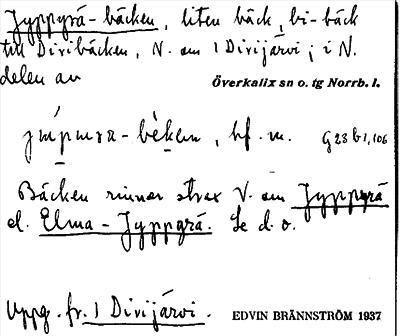 Jyppgrå-bäcken, liten bäck, bi-bäck
till Divibäcken, N. om 1 Divijärvi; i N.
delen av
Överkalix sn o. tg Norrb. l.
bf. m. G 23 b 1, 106
Bäcken rinner strax V. om Jyppgrå
el. Elma-Jyppgrå. Se d. o.
Uppg. fr. 1 Divijärvi.
EDVIN BRÄNNSTRÖM 1937